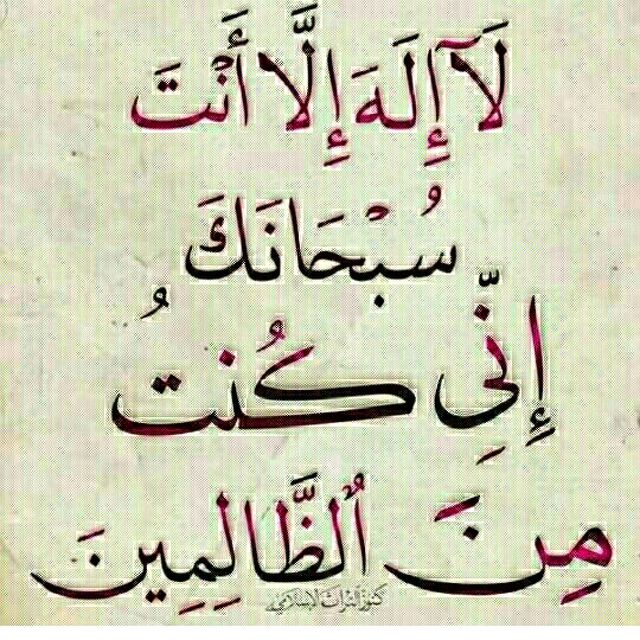 لَآ إِلَهَ إِلَّا أَنْتَ
سُبْحَانَكَ
إِنِّي كُنتُ
مِنَ ٱلظَّالِمِينَ
كنوز التراث الإسلامي